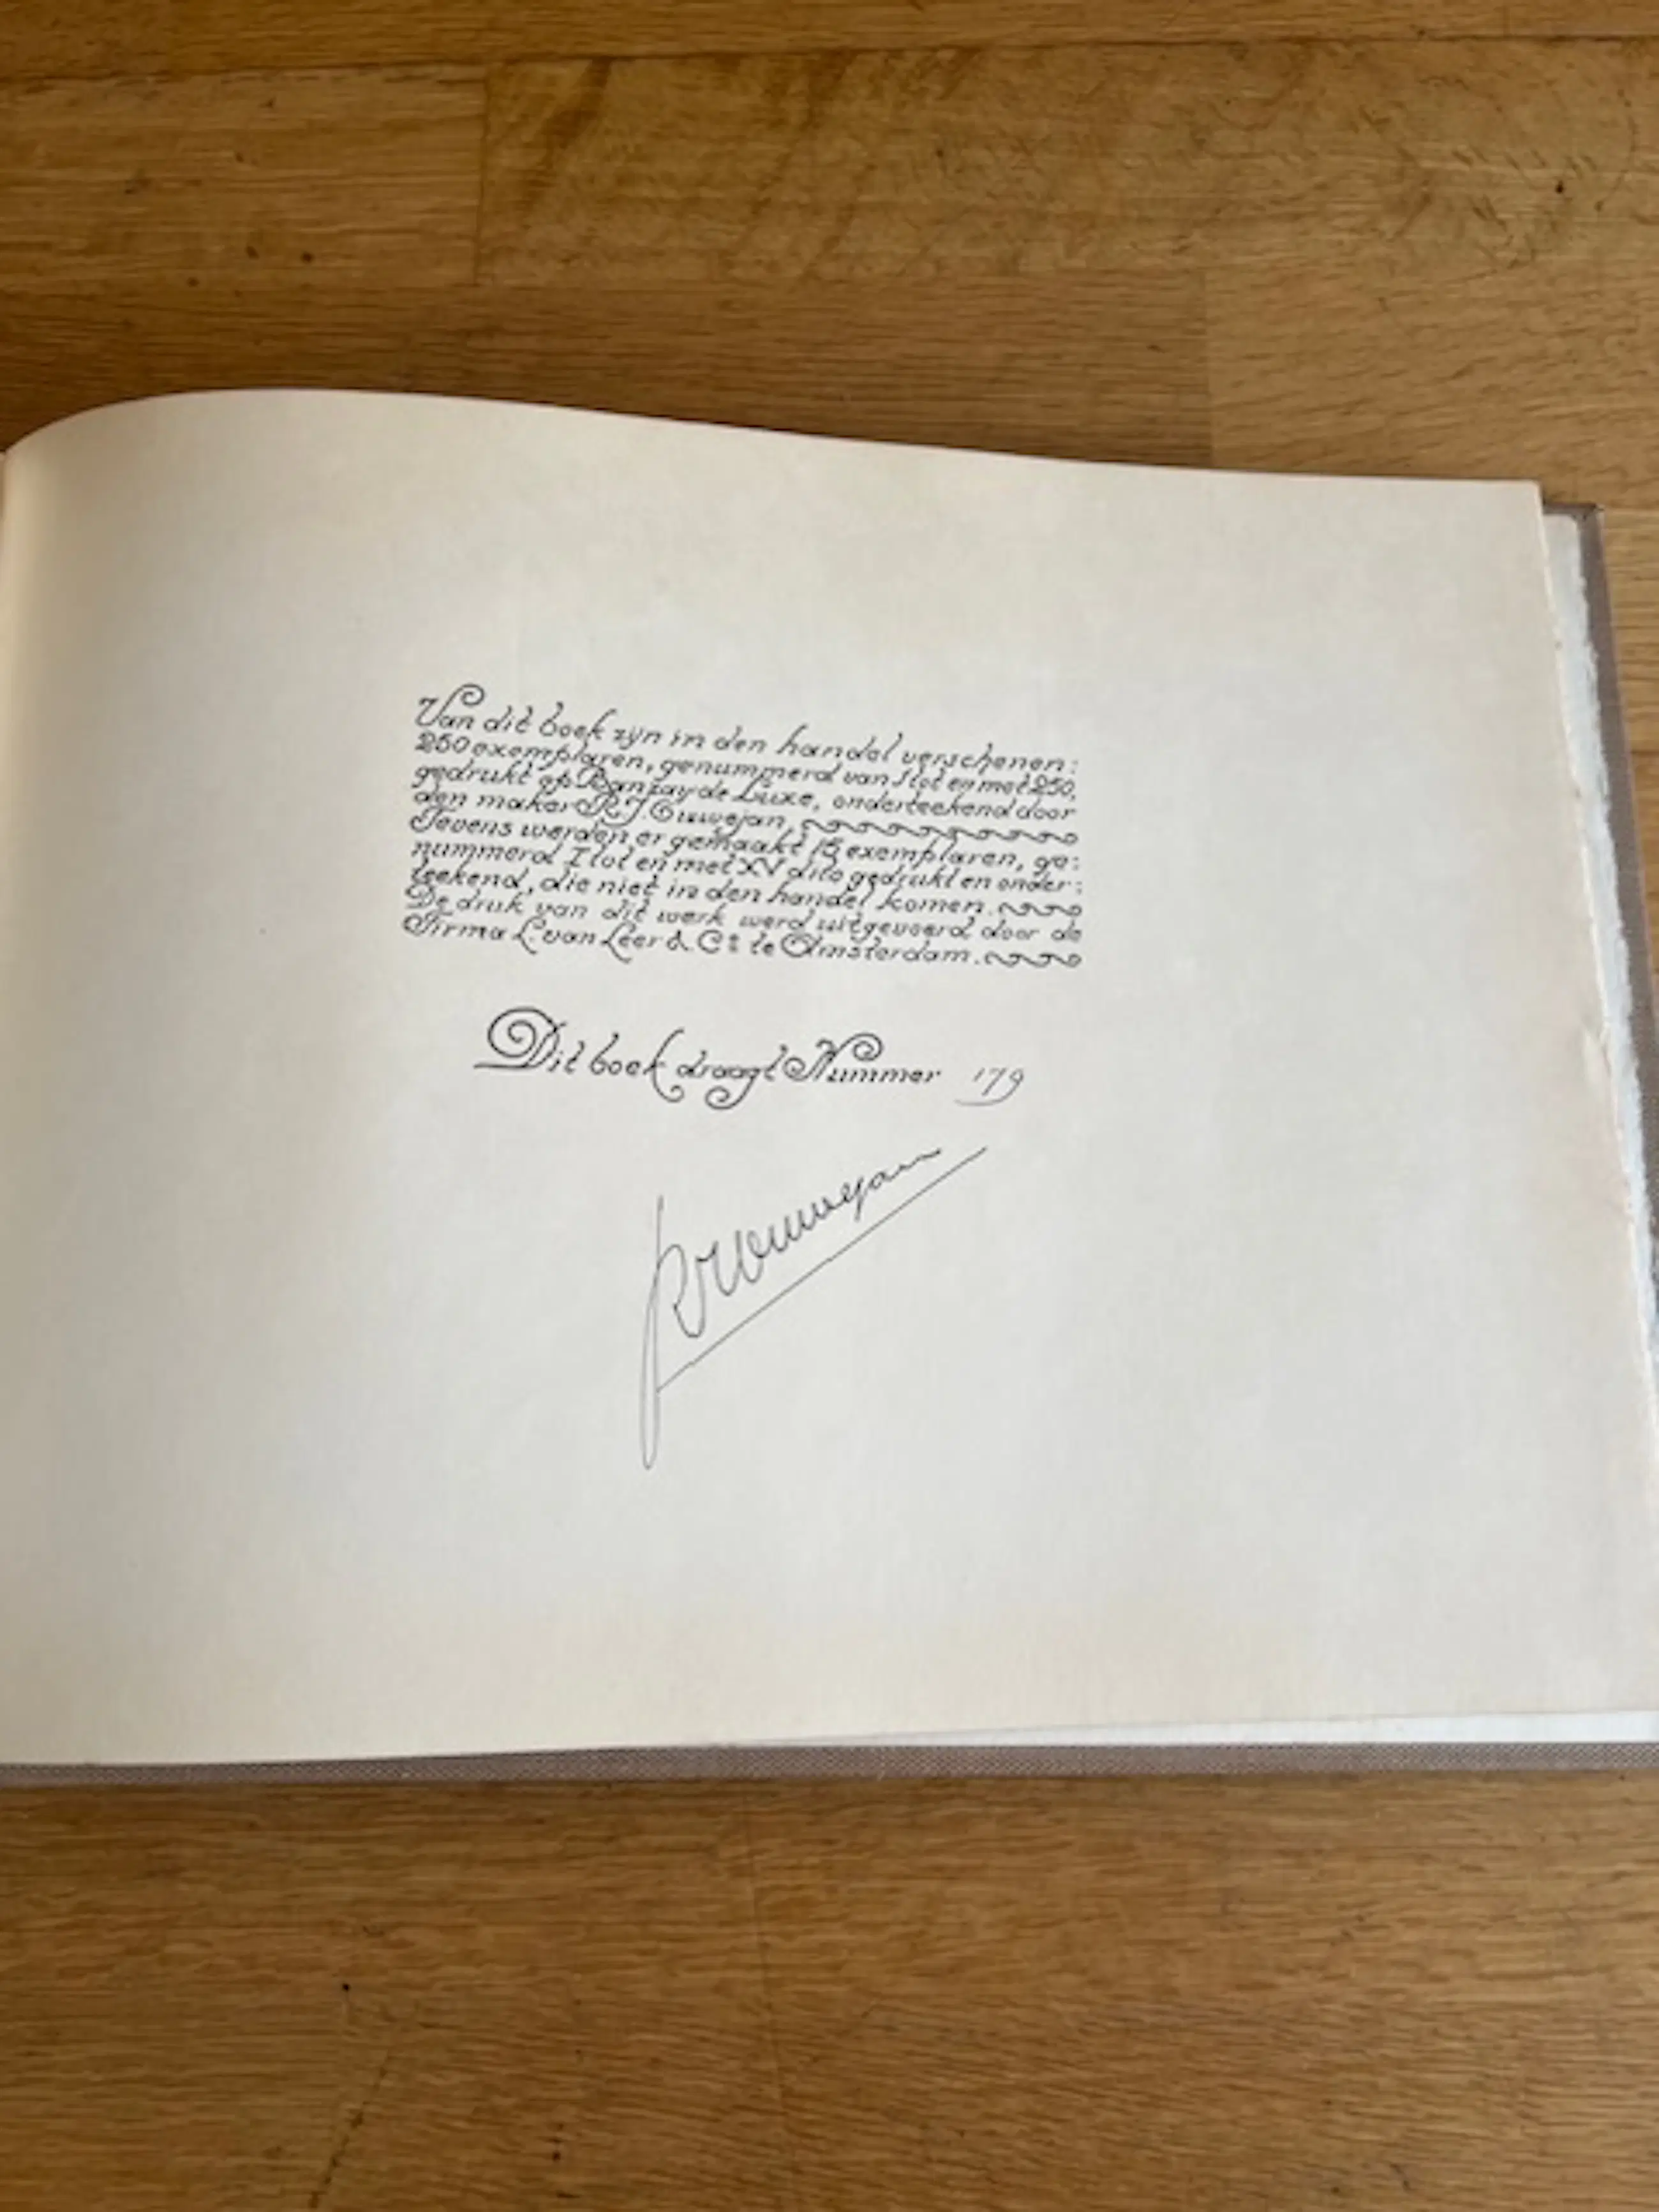 Van dit boek zijn in den handel verschenen:
250 exemplaren, genummerd van 1 tot en met 250,
gedrukt op Banzay de Luxe, onderteekend door
den maker R.J. Ouwejan,
Tevens werden er gemaakt 15 exemplaren, ge:
nummerd I tot en met XV dito gedrukt en onder:
teekend, die niet in den handel komen.
De druk van dit werk werd uitgevoerd door de
Firma L. van Leer & Co te Amsterdam.
Dit boek draagt Nummer 179
RJOuwejan